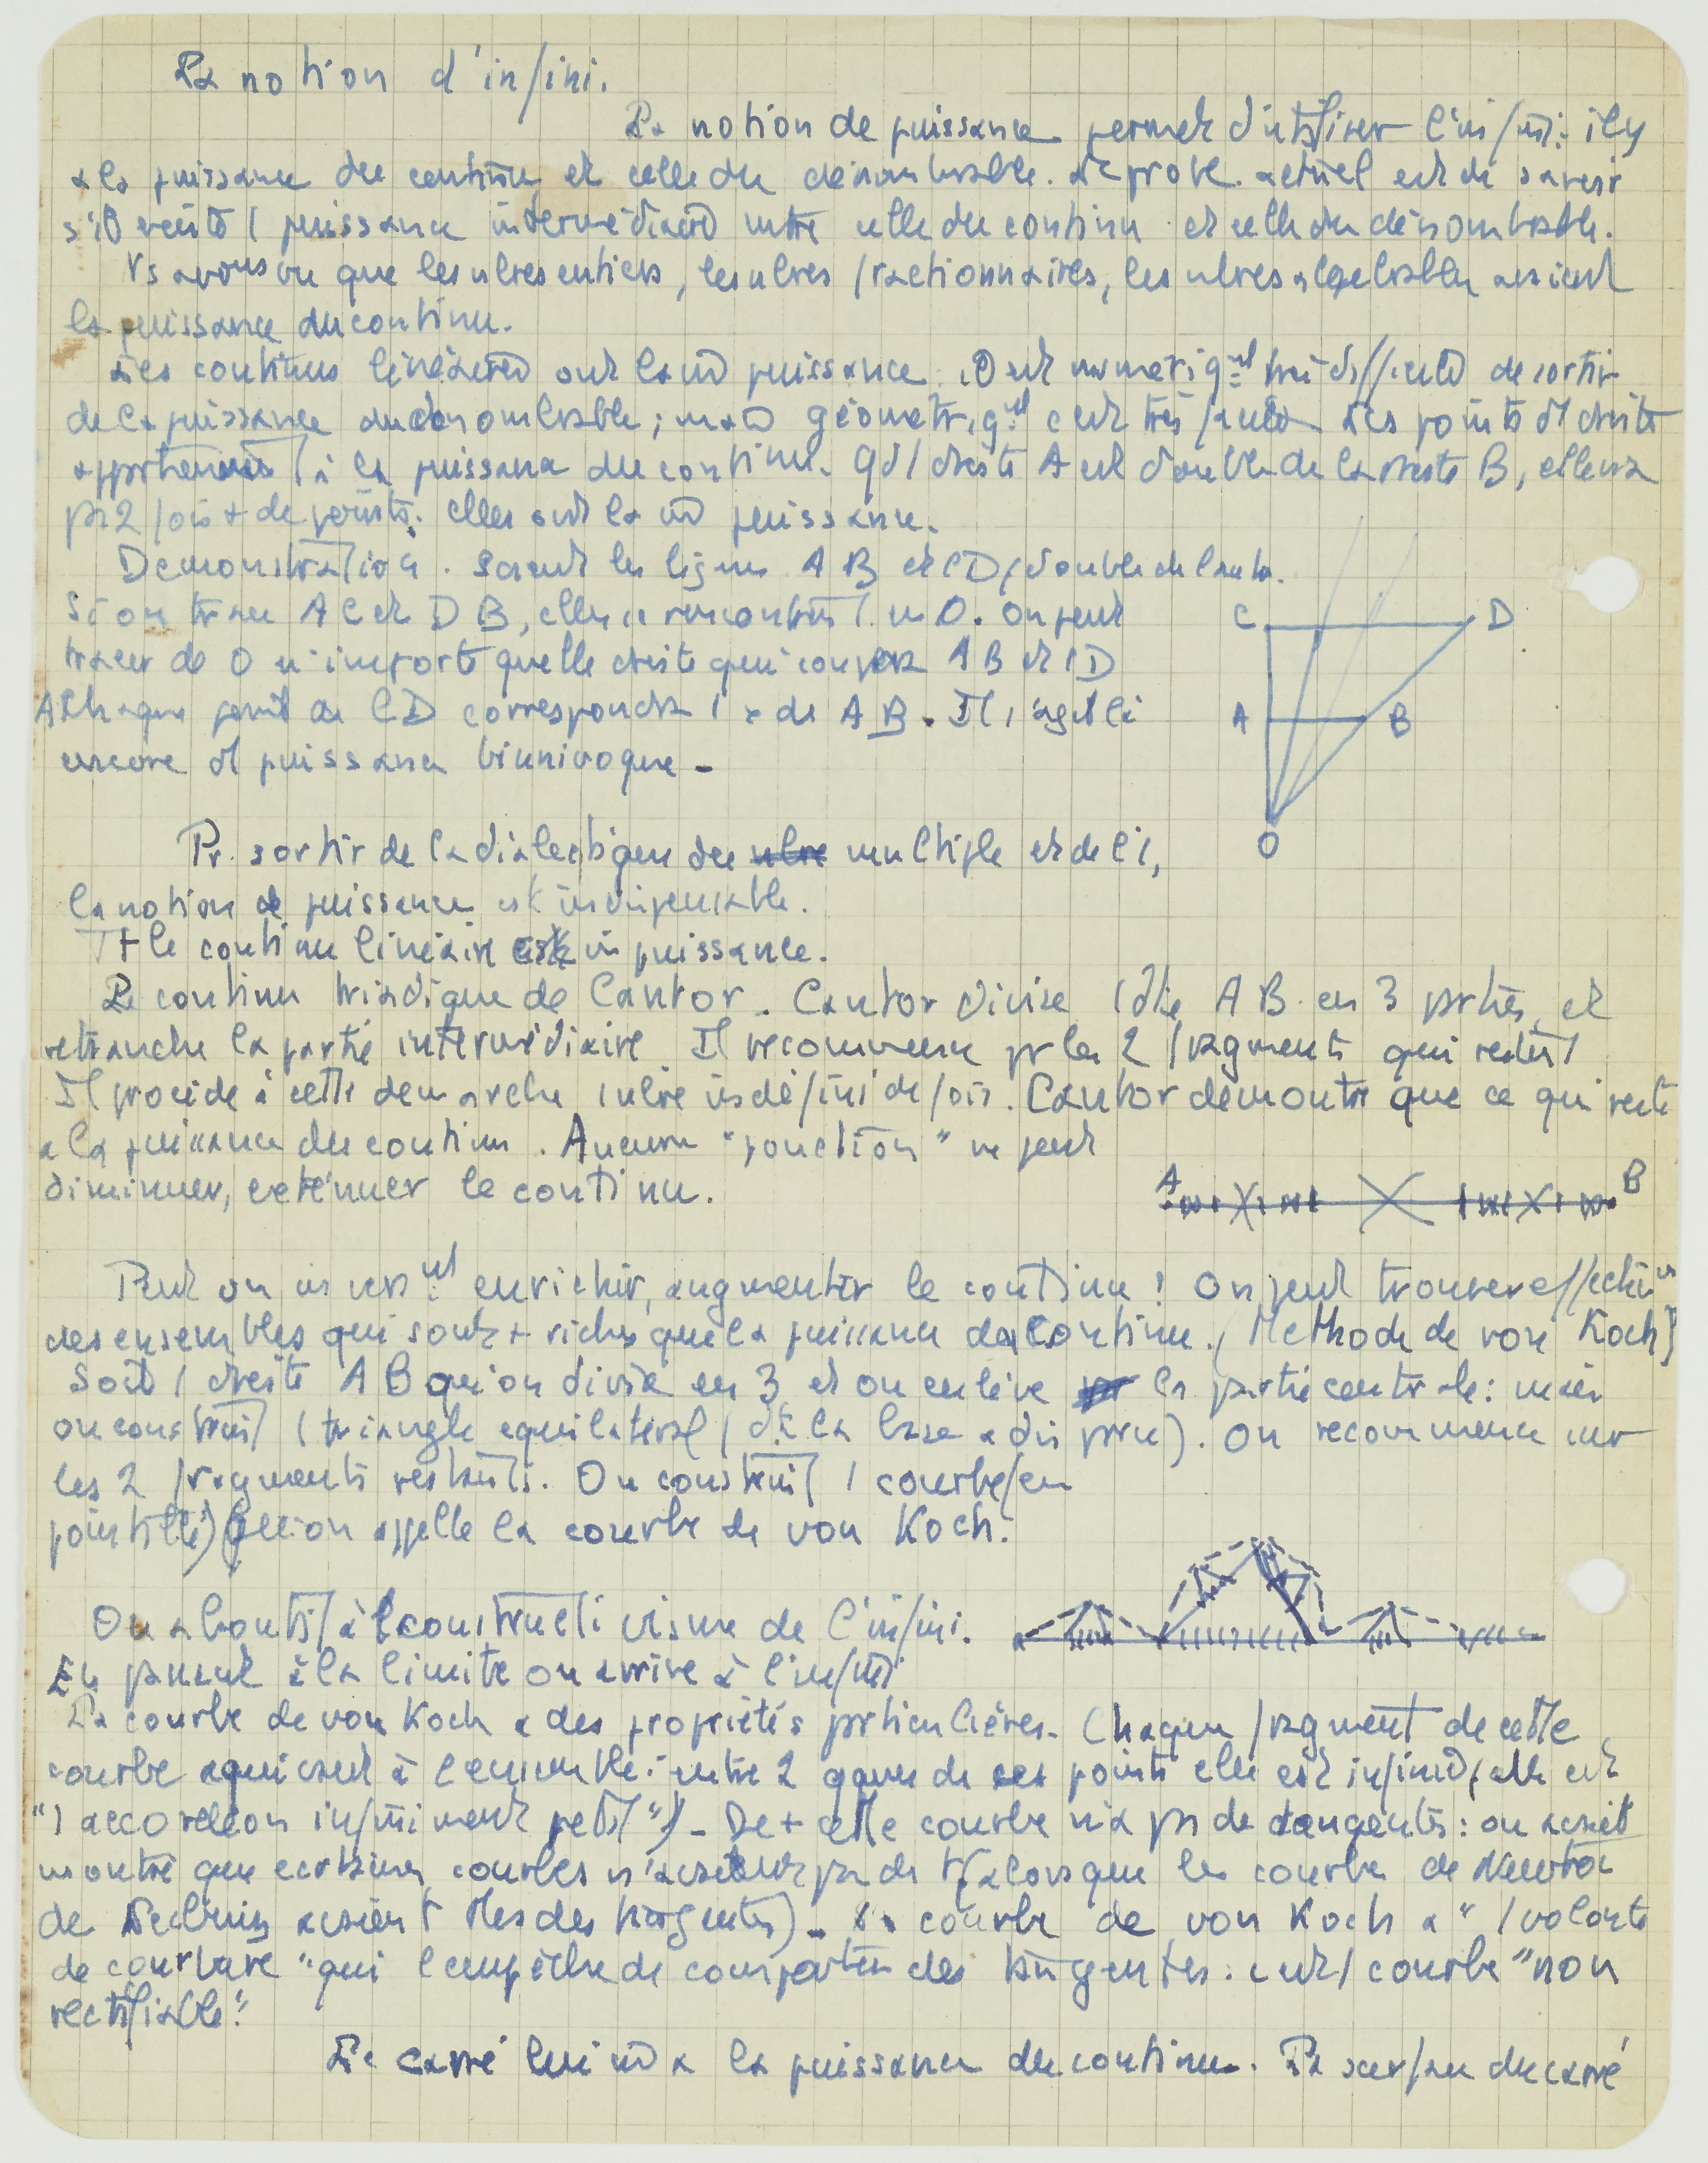 La notion d'infini.
La notion de puissance permet d'utiliser l'infini: il y
a la puissance du continu et celle du dénombrable. Le probl. actuel est de savoir
s'il existe 1 puissance intermédiaire entre celle du continu et celle du dénombrable.
Ns avons vu que les nbres entiers, les nbres fractionnaires, les nbres algébriques
la puissance du continu.
Les continus linéaires ont la m̄ puissance. Il est numériqmt très difficile de sortir
de la puissance du dénombrable; mais géométriqmt c'est très facile Les points d'1 droite
appartiennent à la puissance du continu. Qd 1 droite A est double de la droite B, elle n'a
ps 2 fois + de points: elles ont la m̄ puissance.
Démonstration. Soient les lignes AB et CD, double de l'autre.
Si on trace AC et DB, elles se rencontrent en O. On peut
tracer de O n'importe quelle droite qui coupera AB et CD
A Chaque point de CD correspondra 1 de AB. Il s'agit ici
encore d'1 puissance biunivoque -
C D
A B
O
Pr. sortir de la dialectique du nbre multiple et de l'1,
la notion de puissance est indispensable.
Tt le continu linéaire est m̄ puissance.
Le continu triadique de Cantor. Cantor divise 1 dte AB en 3 prties, et
retranche la partie intermédiaire Il recommence pr les 2 fragments qui restent
Il procède à cette démarche 1 nbre indéfini de fois. Cantor démontre que ce qui reste
a la puissance du continu. Aucune "ponction" ne peut
diminuer, exténuer le continu.
A B
Peut on inversmt enrichir, augmenter le continu! On peut trouver effectivmt
des ensembles qui sont + riches que la puissance du continu. (Méthode de von Koch)
Soit 1 droite AB qu'on divise en 3 et on enlève la partie centrale: mais
on construit 1 triangle équilatéral (dt la base a disparu). On recommence sur
les 2 fragments restants. On construit 1 courbe (en
pointillé) que l'on appelle la courbe de von Koch.
On aboutit à 1 constructivisme de l'infini.
En passant à la limite on arrive à l'infini
La courbe de von Koch a des propriétés prticulières. Chaque fragment de cette
courbe équivaut à l'ensemble: entre 2 qques de ses points elle est infinie, (elle est
"1 accordéon infiniment petit") - De + cette courbe n'a ps de tangentes: on avait
montré que certaines courbes n'avaient ps de tg alors que les courbes de Newton
de Leibniz avaient ttes des tangentes). La courbe de von Koch a "1 volonté
de courbure" qui l'empêche de comporter des tangentes. c'est 1 courbe "non
rectifiable".
Le carré lui m̄ a la puissance du continu. La surface du carré